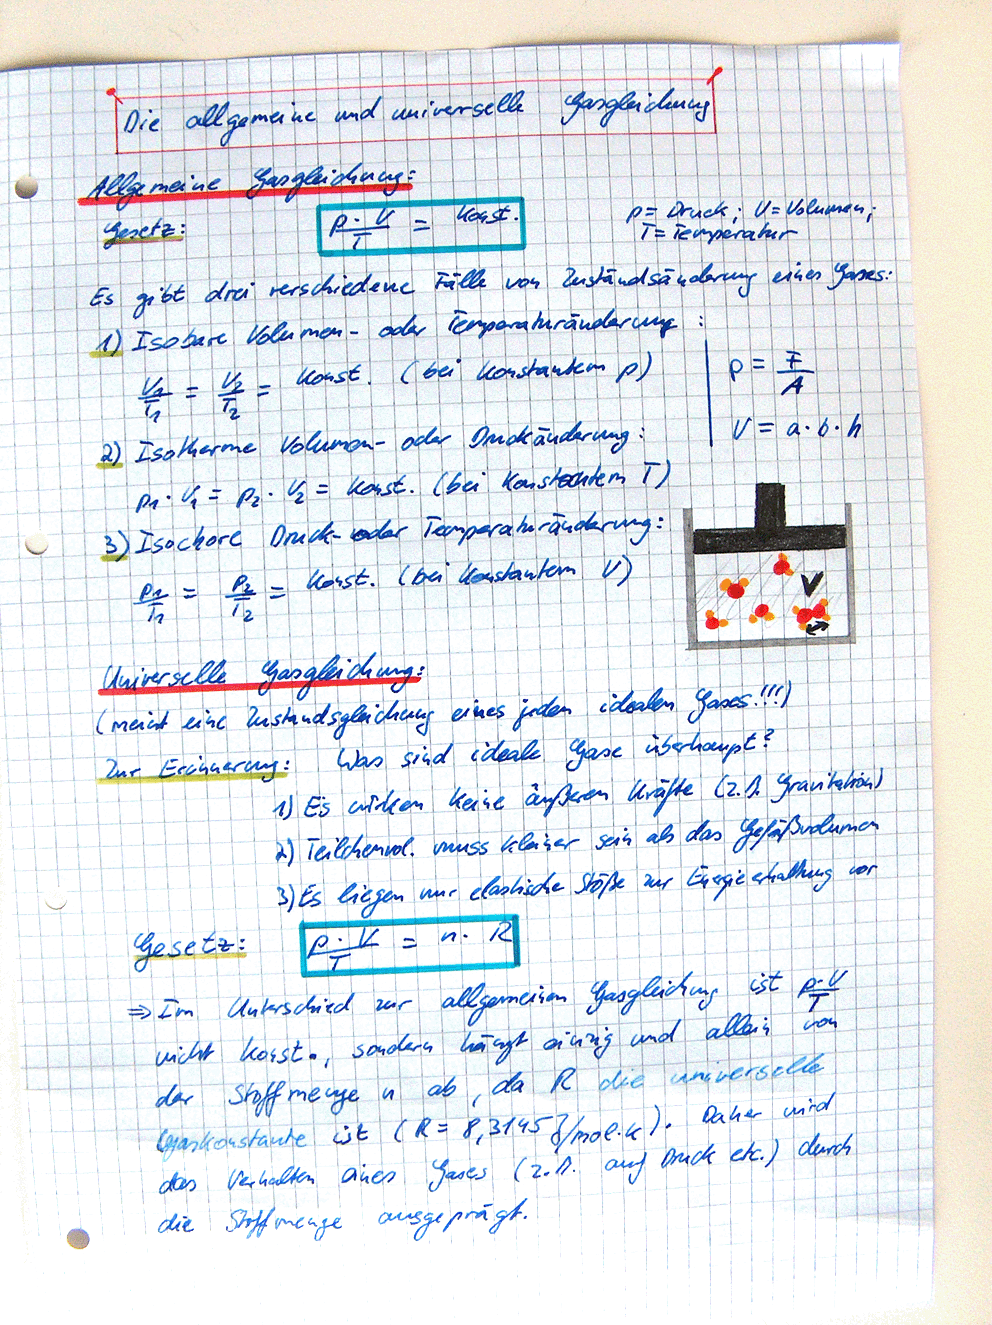 Die allgemeine und universelle Gasgleichung
Allgemeine Gasgleichung:
Gesetz: p · V / T = konst. p = Druck; V = Volumen;
T = Temperatur
Es gibt drei verschiedene Fälle von Zuständsänderung eines Gases:
1) Isobare Volumen- oder Temperaturänderung :
V1/T1 = V2/T2 = konst. (bei konstantem p)
p = F/A
V = a · b · h
2) Isotherme Volumen- oder Druckänderung:
p1 · V1 = p2 · V2 = konst. (bei konstantem T)
3) Isochore Druck- oder Temperaturänderung:
p1/T1 = p2/T2 = konst. (bei konstantem V)
V
Universelle Gasgleichung:
(meint eine Zustandsgleichung eines jeden idealen Gases!!!)
Zur Erinnerung: Was sind ideale Gase überhaupt?
1) Es wirken keine äußeren Kräfte (z.B. Gravitation)
2) Teilchenvol. muss kleiner sein als das Gefäßvolumen
3) Es liegen nur elastische Stöße zur Energieerhaltung vor
Gesetz: p · V / T = n · R
⇒ Im Unterschied zur allgemeinen Gasgleichung ist p·V/T
nicht konst., sondern hängt einzig und allein von
der Stoffmenge n ab, da R die universelle
Gaskonstante ist (R = 8,3145 J/mol·K). Daher wird
das Verhalten eines Gases (z.B. auf Druck etc.) durch
die Stoffmenge ausgeprägt.